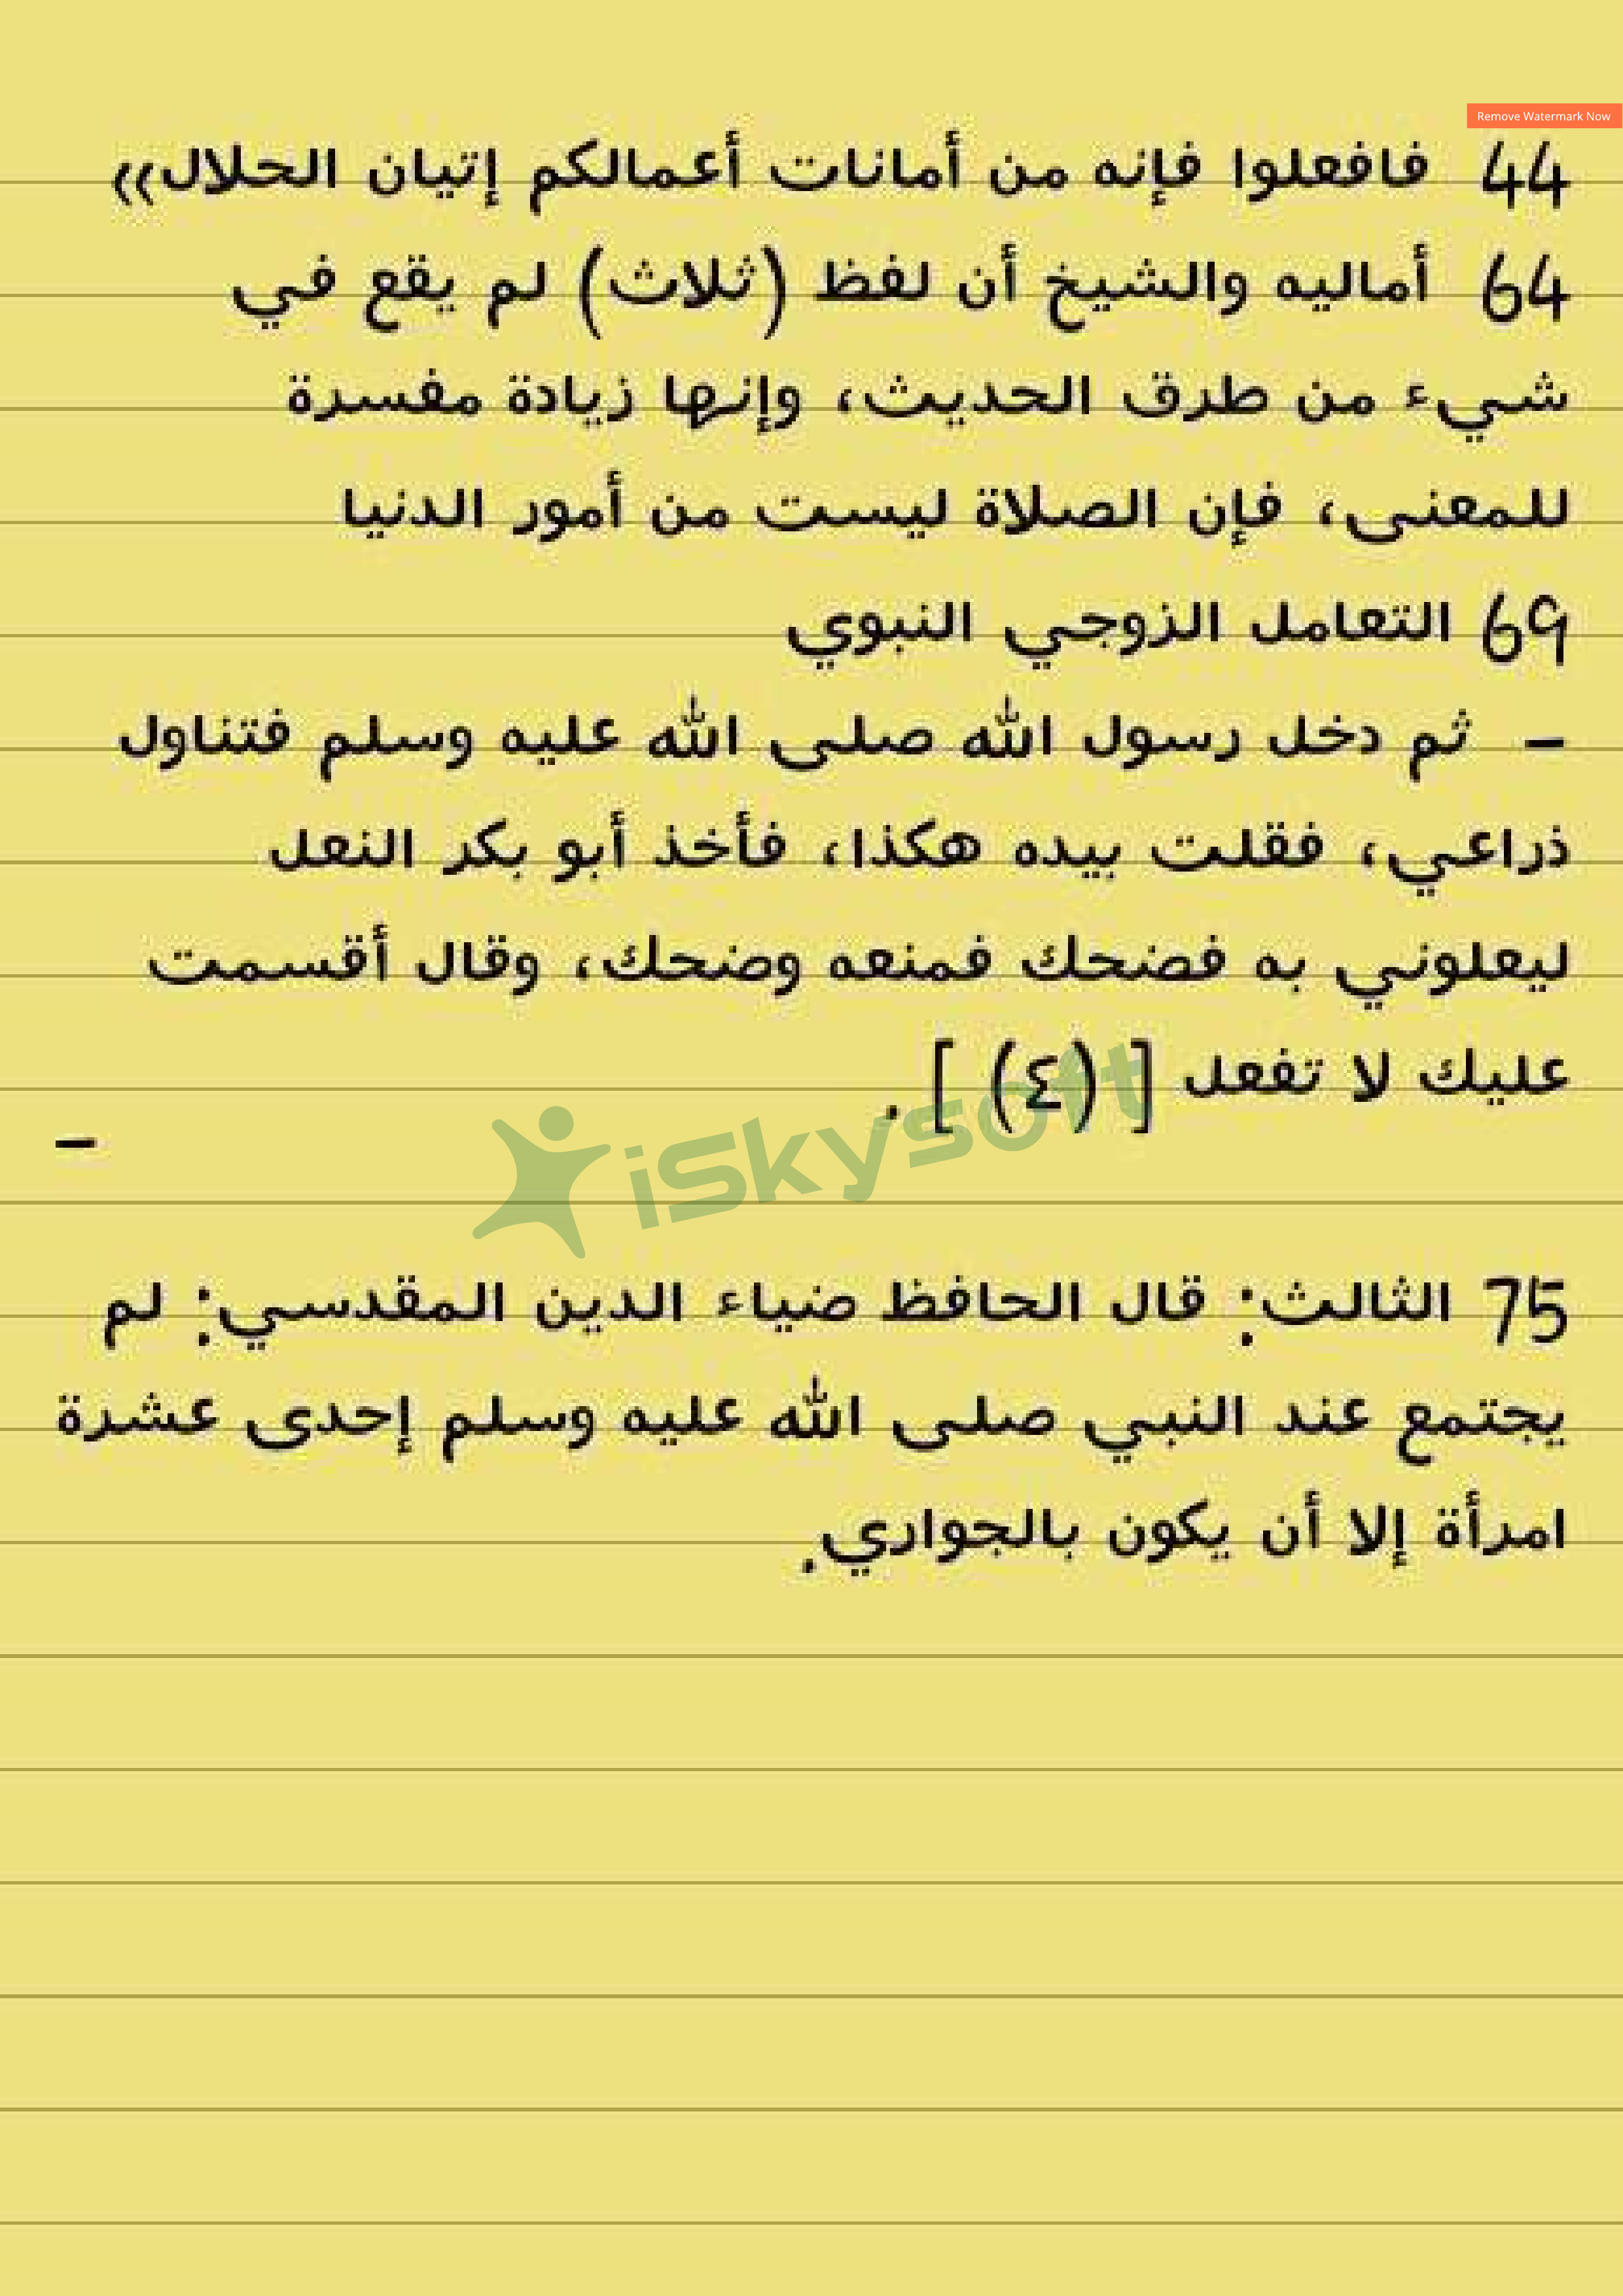 Remove Watermark Now
44 فافعلوا فإنه من أمانات أعمالكم إتيان الحلال»
64 أماليه والشيخ أن لفظ (ثلاث) لم يقع في
شيء من طرق الحديث، وإنها زيادة مفسرة
للمعنى، فإن الصلاة ليست من أمور الدنيا
69 التعامل الزوجي النبوي
– ثم دخل رسول الله صلى الله عليه وسلم فتناول
ذراعي، فقلت بيده هكذا، فأخذ أبو بكر النعل
ليعلوني به فضحك فمنعه وضحك، وقال أقسمت
عليك لا تفعل [ (٤) ] .
–
iSkysoft
75 الثالث: قال الحافظ ضياء الدين المقدسي: لم
يجتمع عند النبي صلى الله عليه وسلم إحدى عشرة
امرأة إلا أن يكون بالجواري.